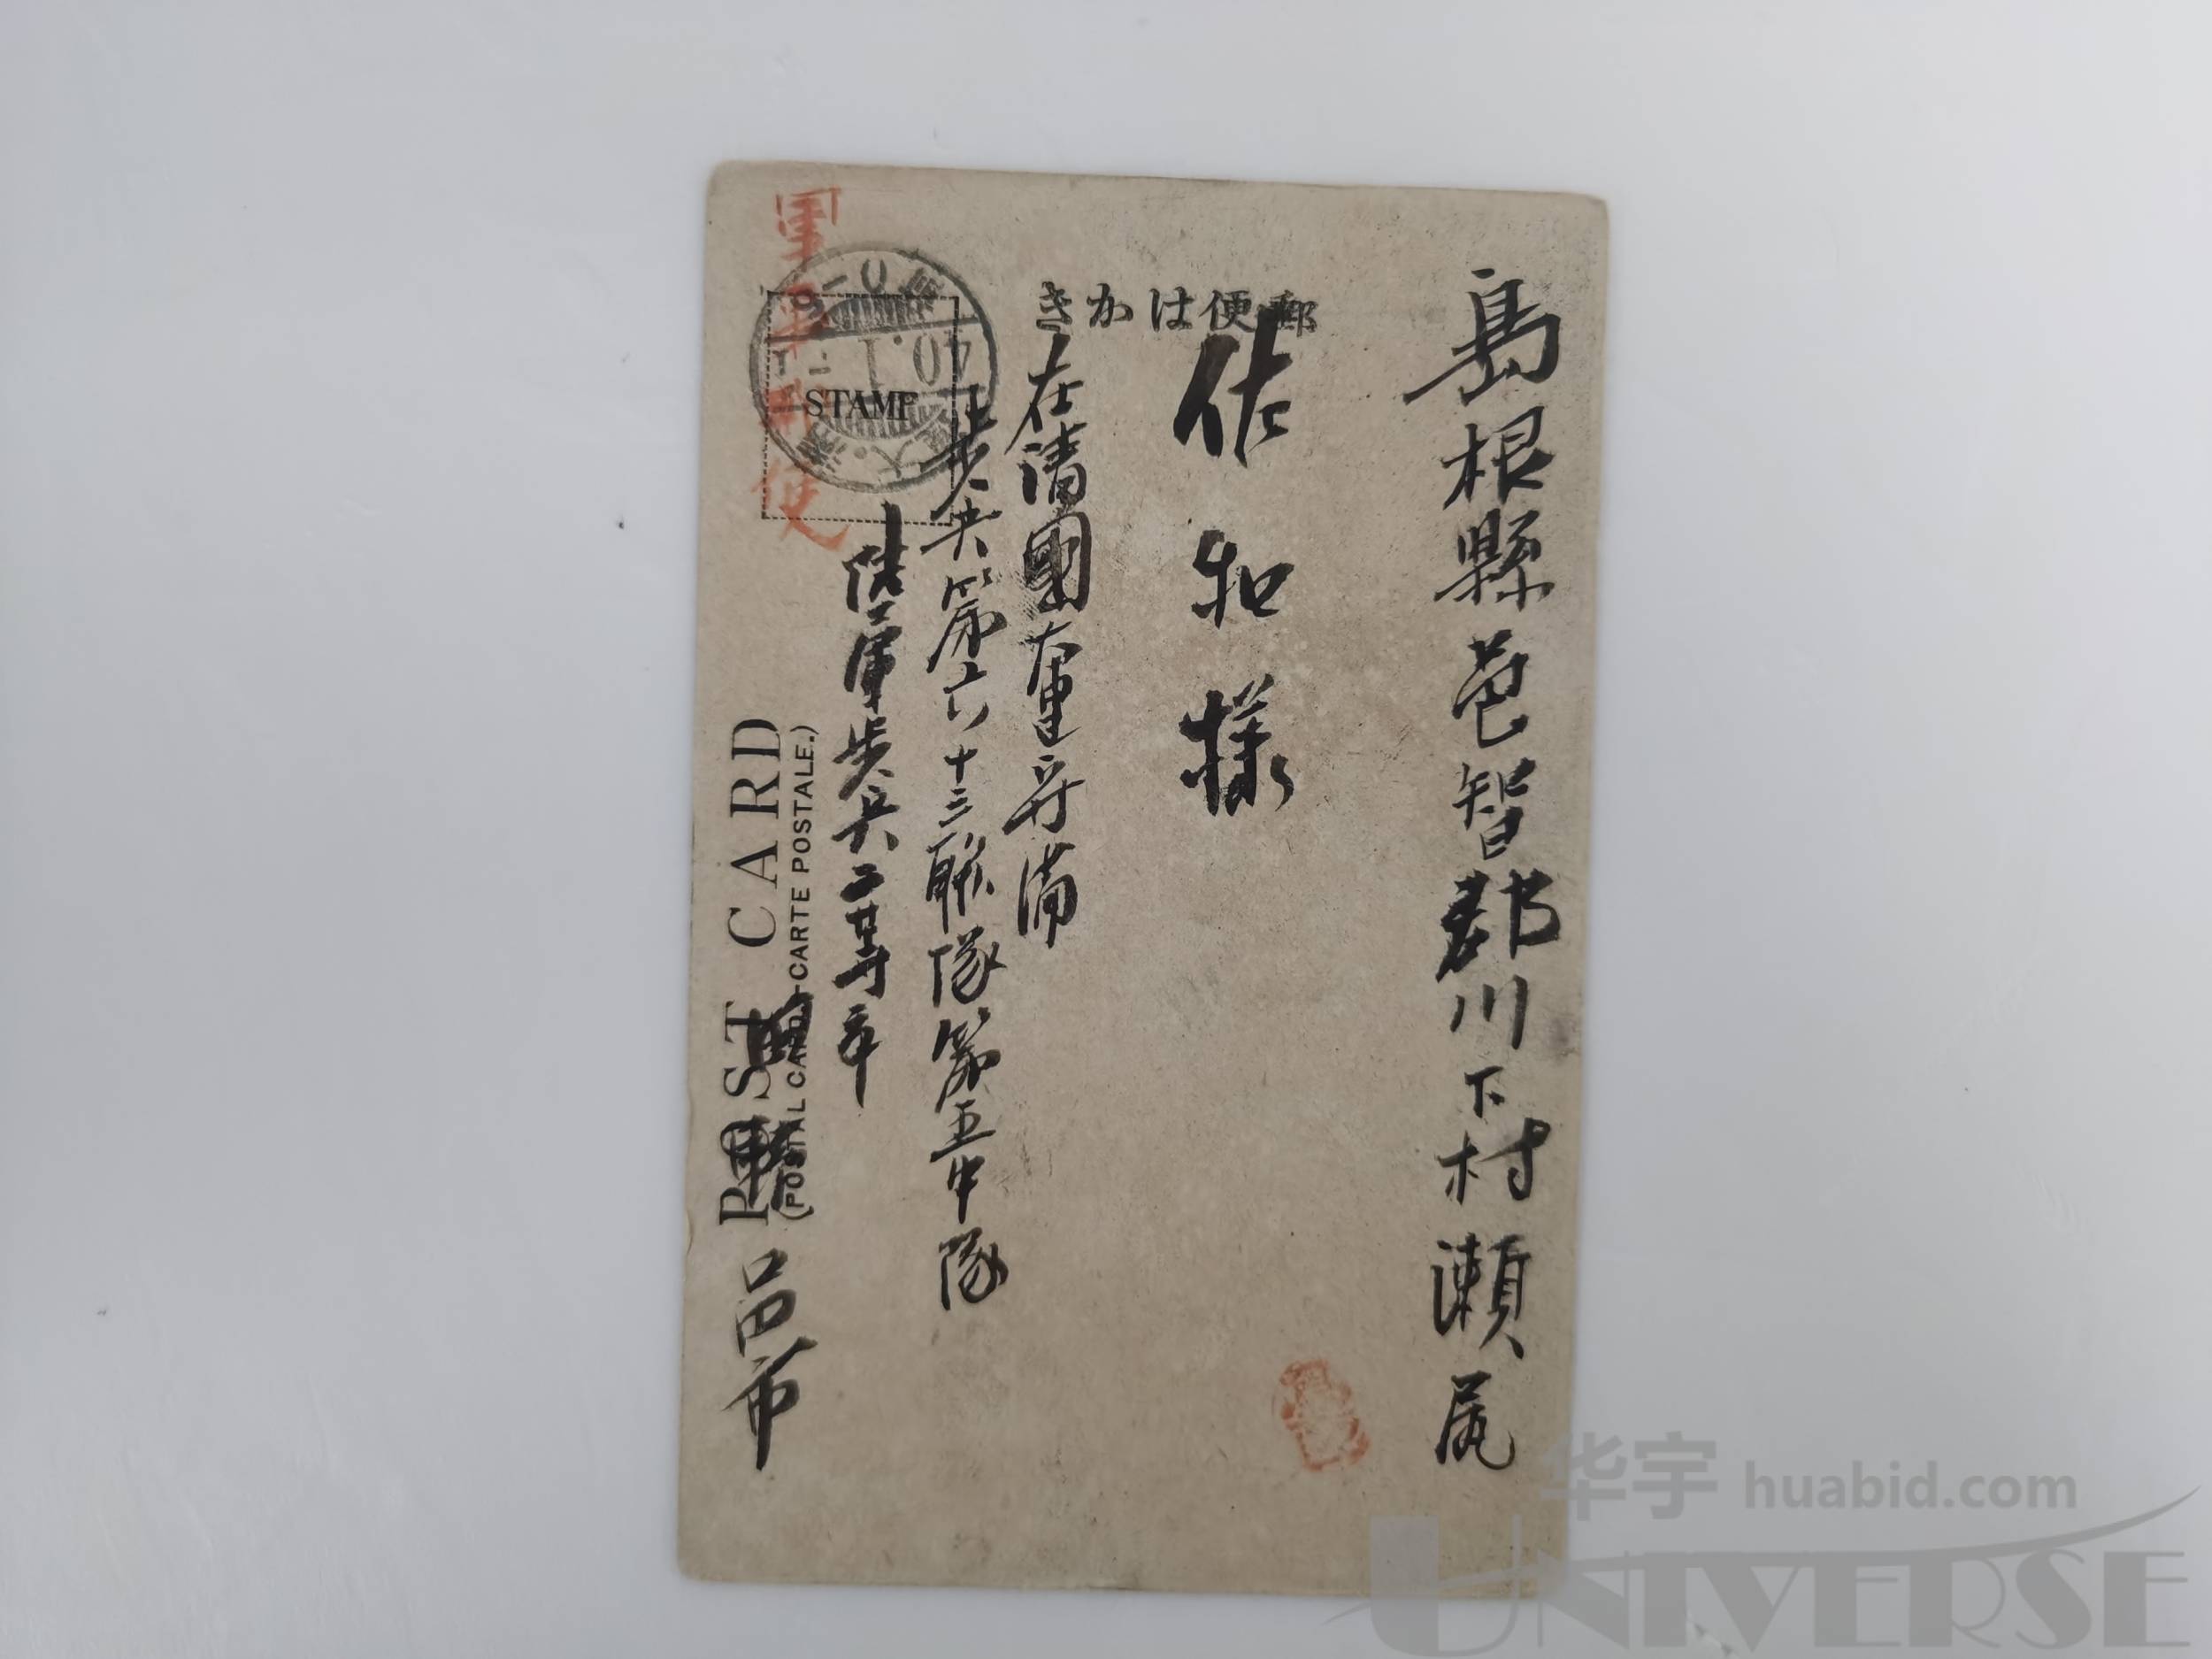 島根縣邑智郡川下村瀬尻
佐和様
郵便はかき
在清國大連守備
歩兵第六十三聯隊第五中隊
陸軍歩兵二等卒
邑市
軍事郵便
STAMP
POST CARD
(POSTAL CARD-CARTE POSTALE.)
华宇 huabid.com
UNIVERSE